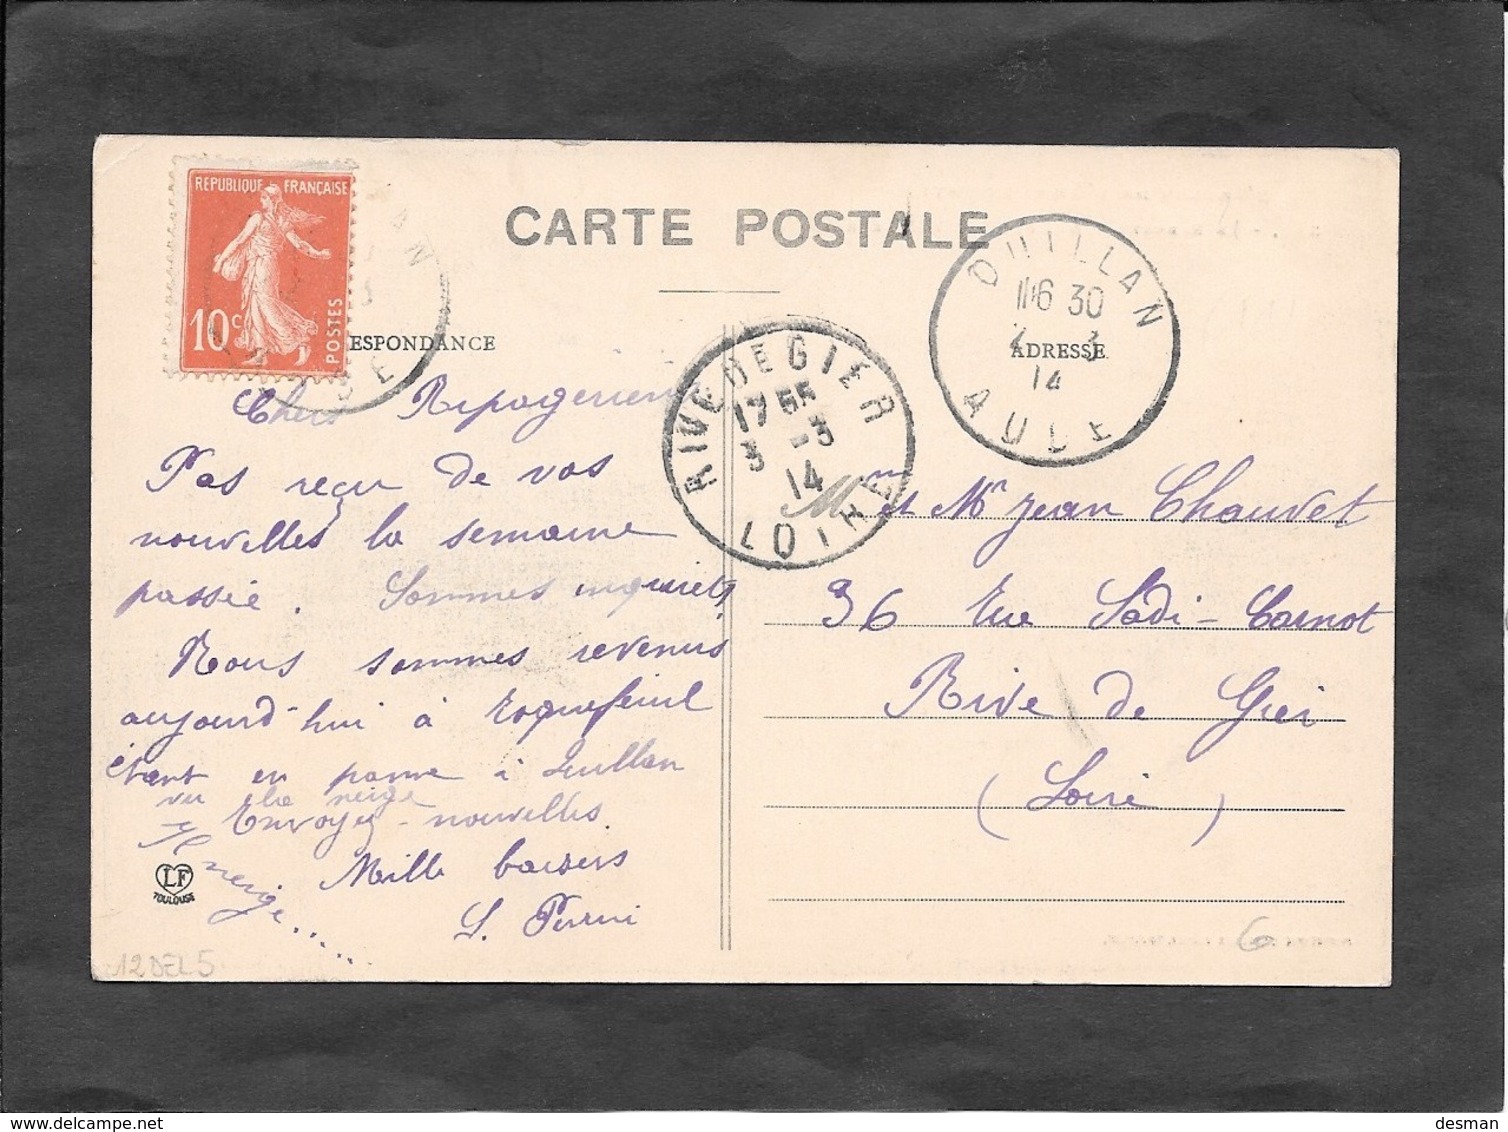 REPUBLIQUE FRANÇAISE
10c
POSTES
CARTE POSTALE
ESPONDANCE
ADRESSE
QUILLAN
16 30
2 3
14
AUDE
RIVE DE GIER
17 55
3 -3
14
LOIRE
Chers
Pas reçu de vos
nouvelles la semaine
passée. Sommes inquiets.
Nous sommes revenus
aujourd'hui à roquefeuil
étant en panne à Quillan
vu la neige
Envoyez nouvelles.
Mille baisers
neige.....
Mme et Mr Jean Chauvet
36 rue Sadi-Carnot
Rive de Gier
(Loire)
LF
TOULOUSE
12 DEL 5
6
desman